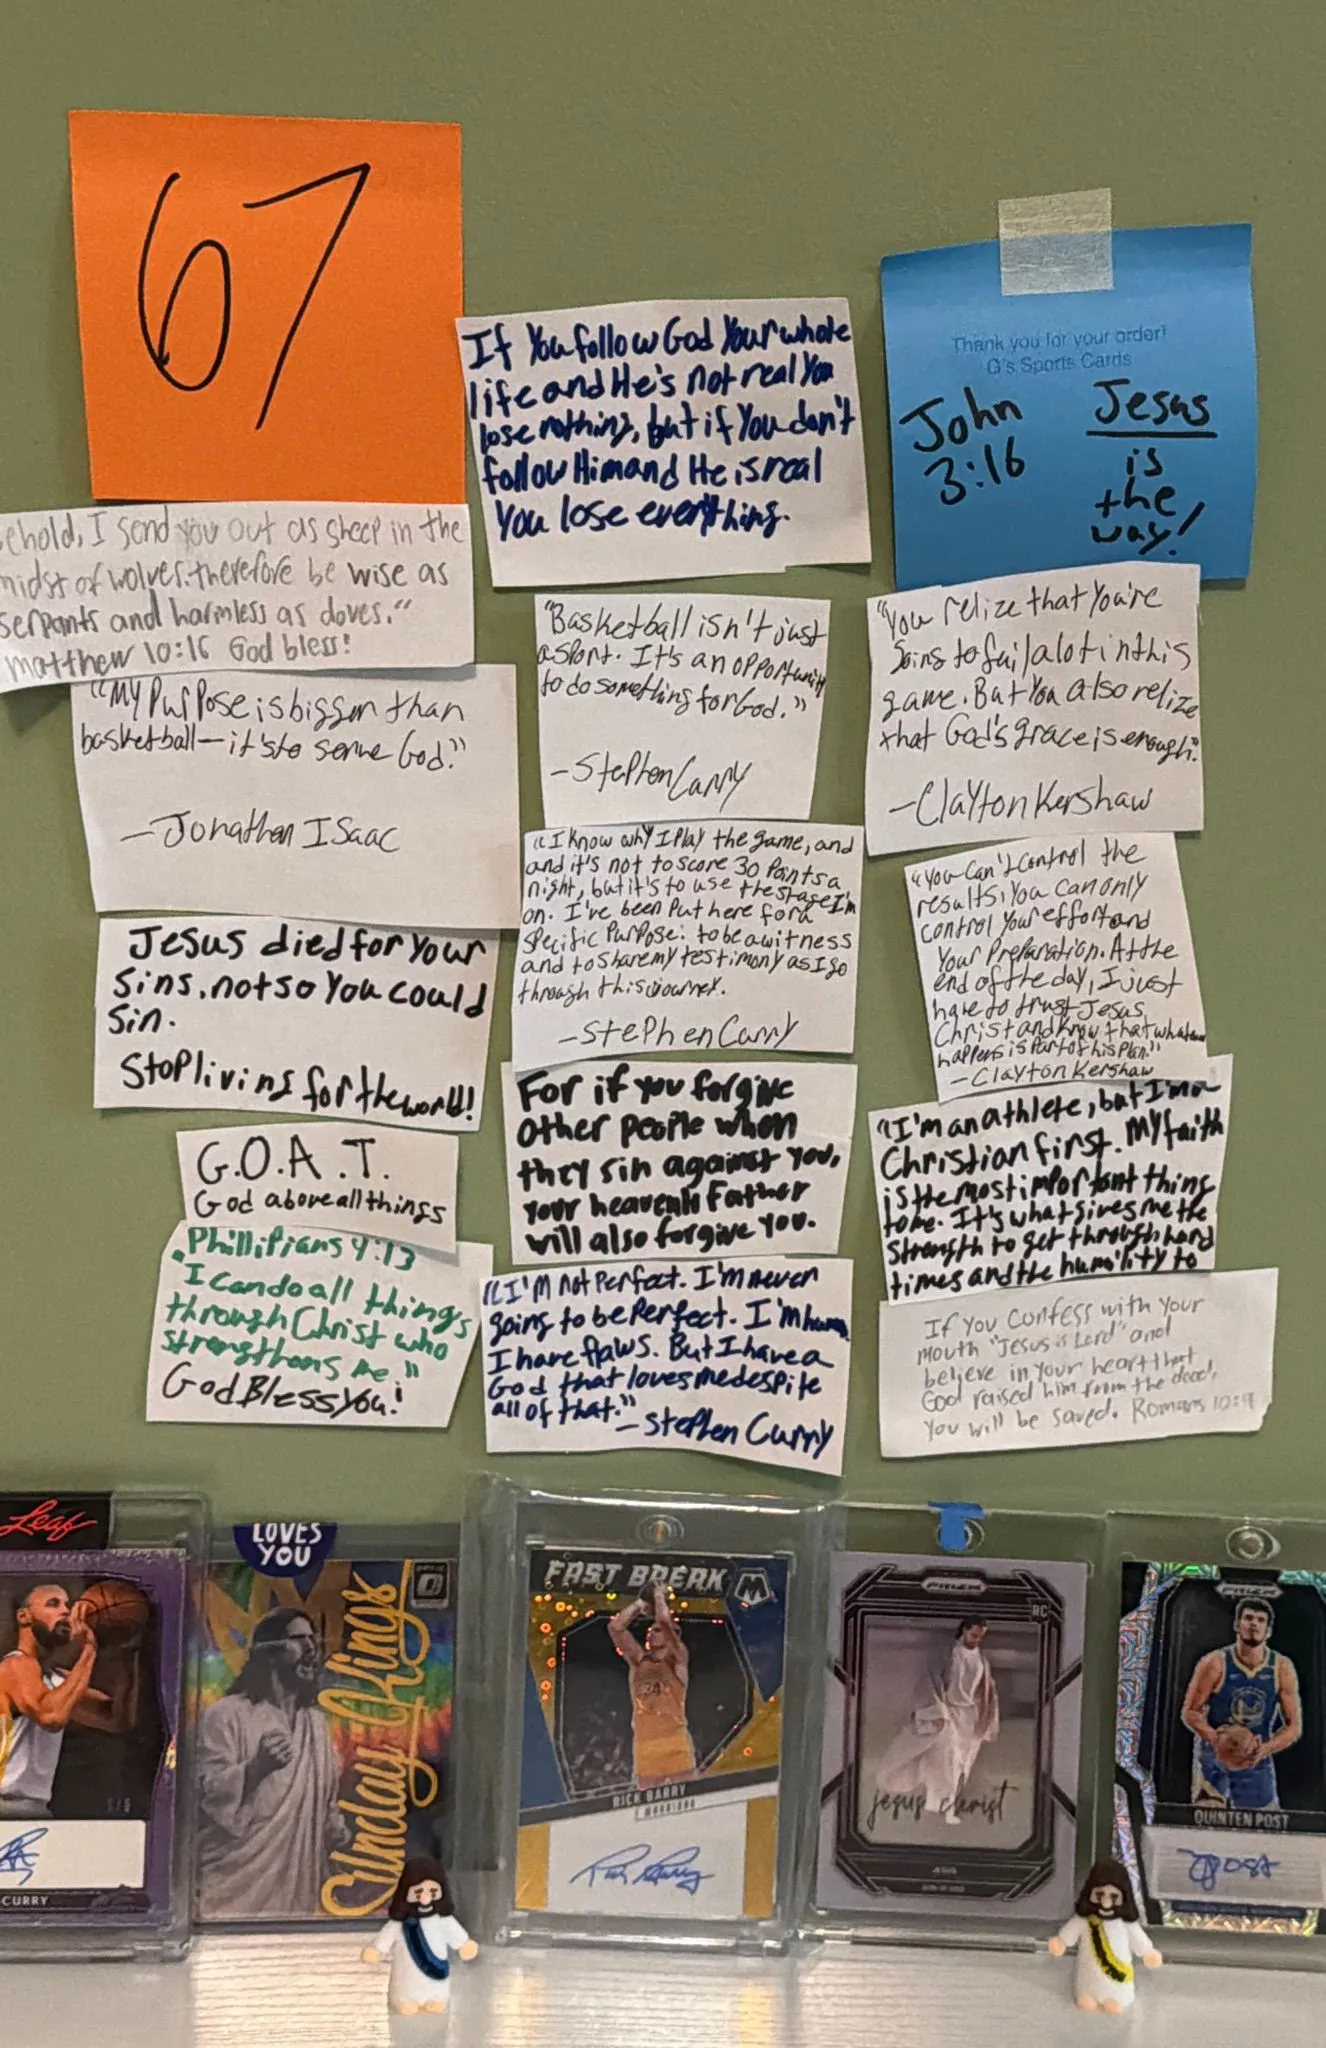 67
If You follow God Your whole
life and He's not real You
lose nothing, but if You don't
follow Him and He is real
You lose everything.
Thank you for your order!
G's Sports Cards
John
3:16
Jesus
is
the
way!
ehold, I send you out as sheep in the
midst of wolves. therefore be wise as
serpants and harmless as doves."
Matthew 10:16 God bless!
"My PurPose is bigger than
basketball—it's to serve God."
—Jonathan Isaac
"Basketball isn't just
a sport. It's an opportunity
to do something for God."
—Stephen Curry
"You relize that You're
going to fail alot in this
game. But You also relize
that God's grace is enough."
—Clayton Kershaw
"I know why I Play the game, and
and it's not to score 30 Points a
night, but it's to use the stage I'm
on. I've been Put here for a
specific Purpose: to be a witness
and to share my testimony as I go
through this journey.
—Stephen Curry
"You can't control the
results, You can only
control Your effort and
Your Preparation. At the
end of the day, I just
have to trust Jesus
Christ and know that whatever
happens is Part of his Plan."
—Clayton Kershaw
Jesus died for Your
Sins, not so You could
Sin.
Stop living for the world!
For if you forgive
other people when
they sin against you,
your heavenly Father
will also forgive you.
"I'm an athlete, but I'm a
Christian first. My faith
is the most important thing
to me. It's what gives me the
strength to get through hard
times and the humility to
G.O.A.T.
God above all things
Phillipians 4:13
"I can do all things
through Christ who
strengthens me"
God Bless You!
"I'M not Perfect. I'm never
going to be Perfect. I'm human.
I have flaws. But I have a
God that loves me despite
all of that."
—Stephen Curry
If you confess with your
mouth "Jesus is Lord" and
believe in your heart that
God raised him from the dead,
You will be saved. Romans 10:9
Leaf
CURRY
LOVES
YOU
OPTIC
Sunday Kings
FAST BREAK
M
34
RICK BARRY
WARRIORS
Rick Barry
PRIZM
RC
jesus christ
PRIZM
QUINTEN POST